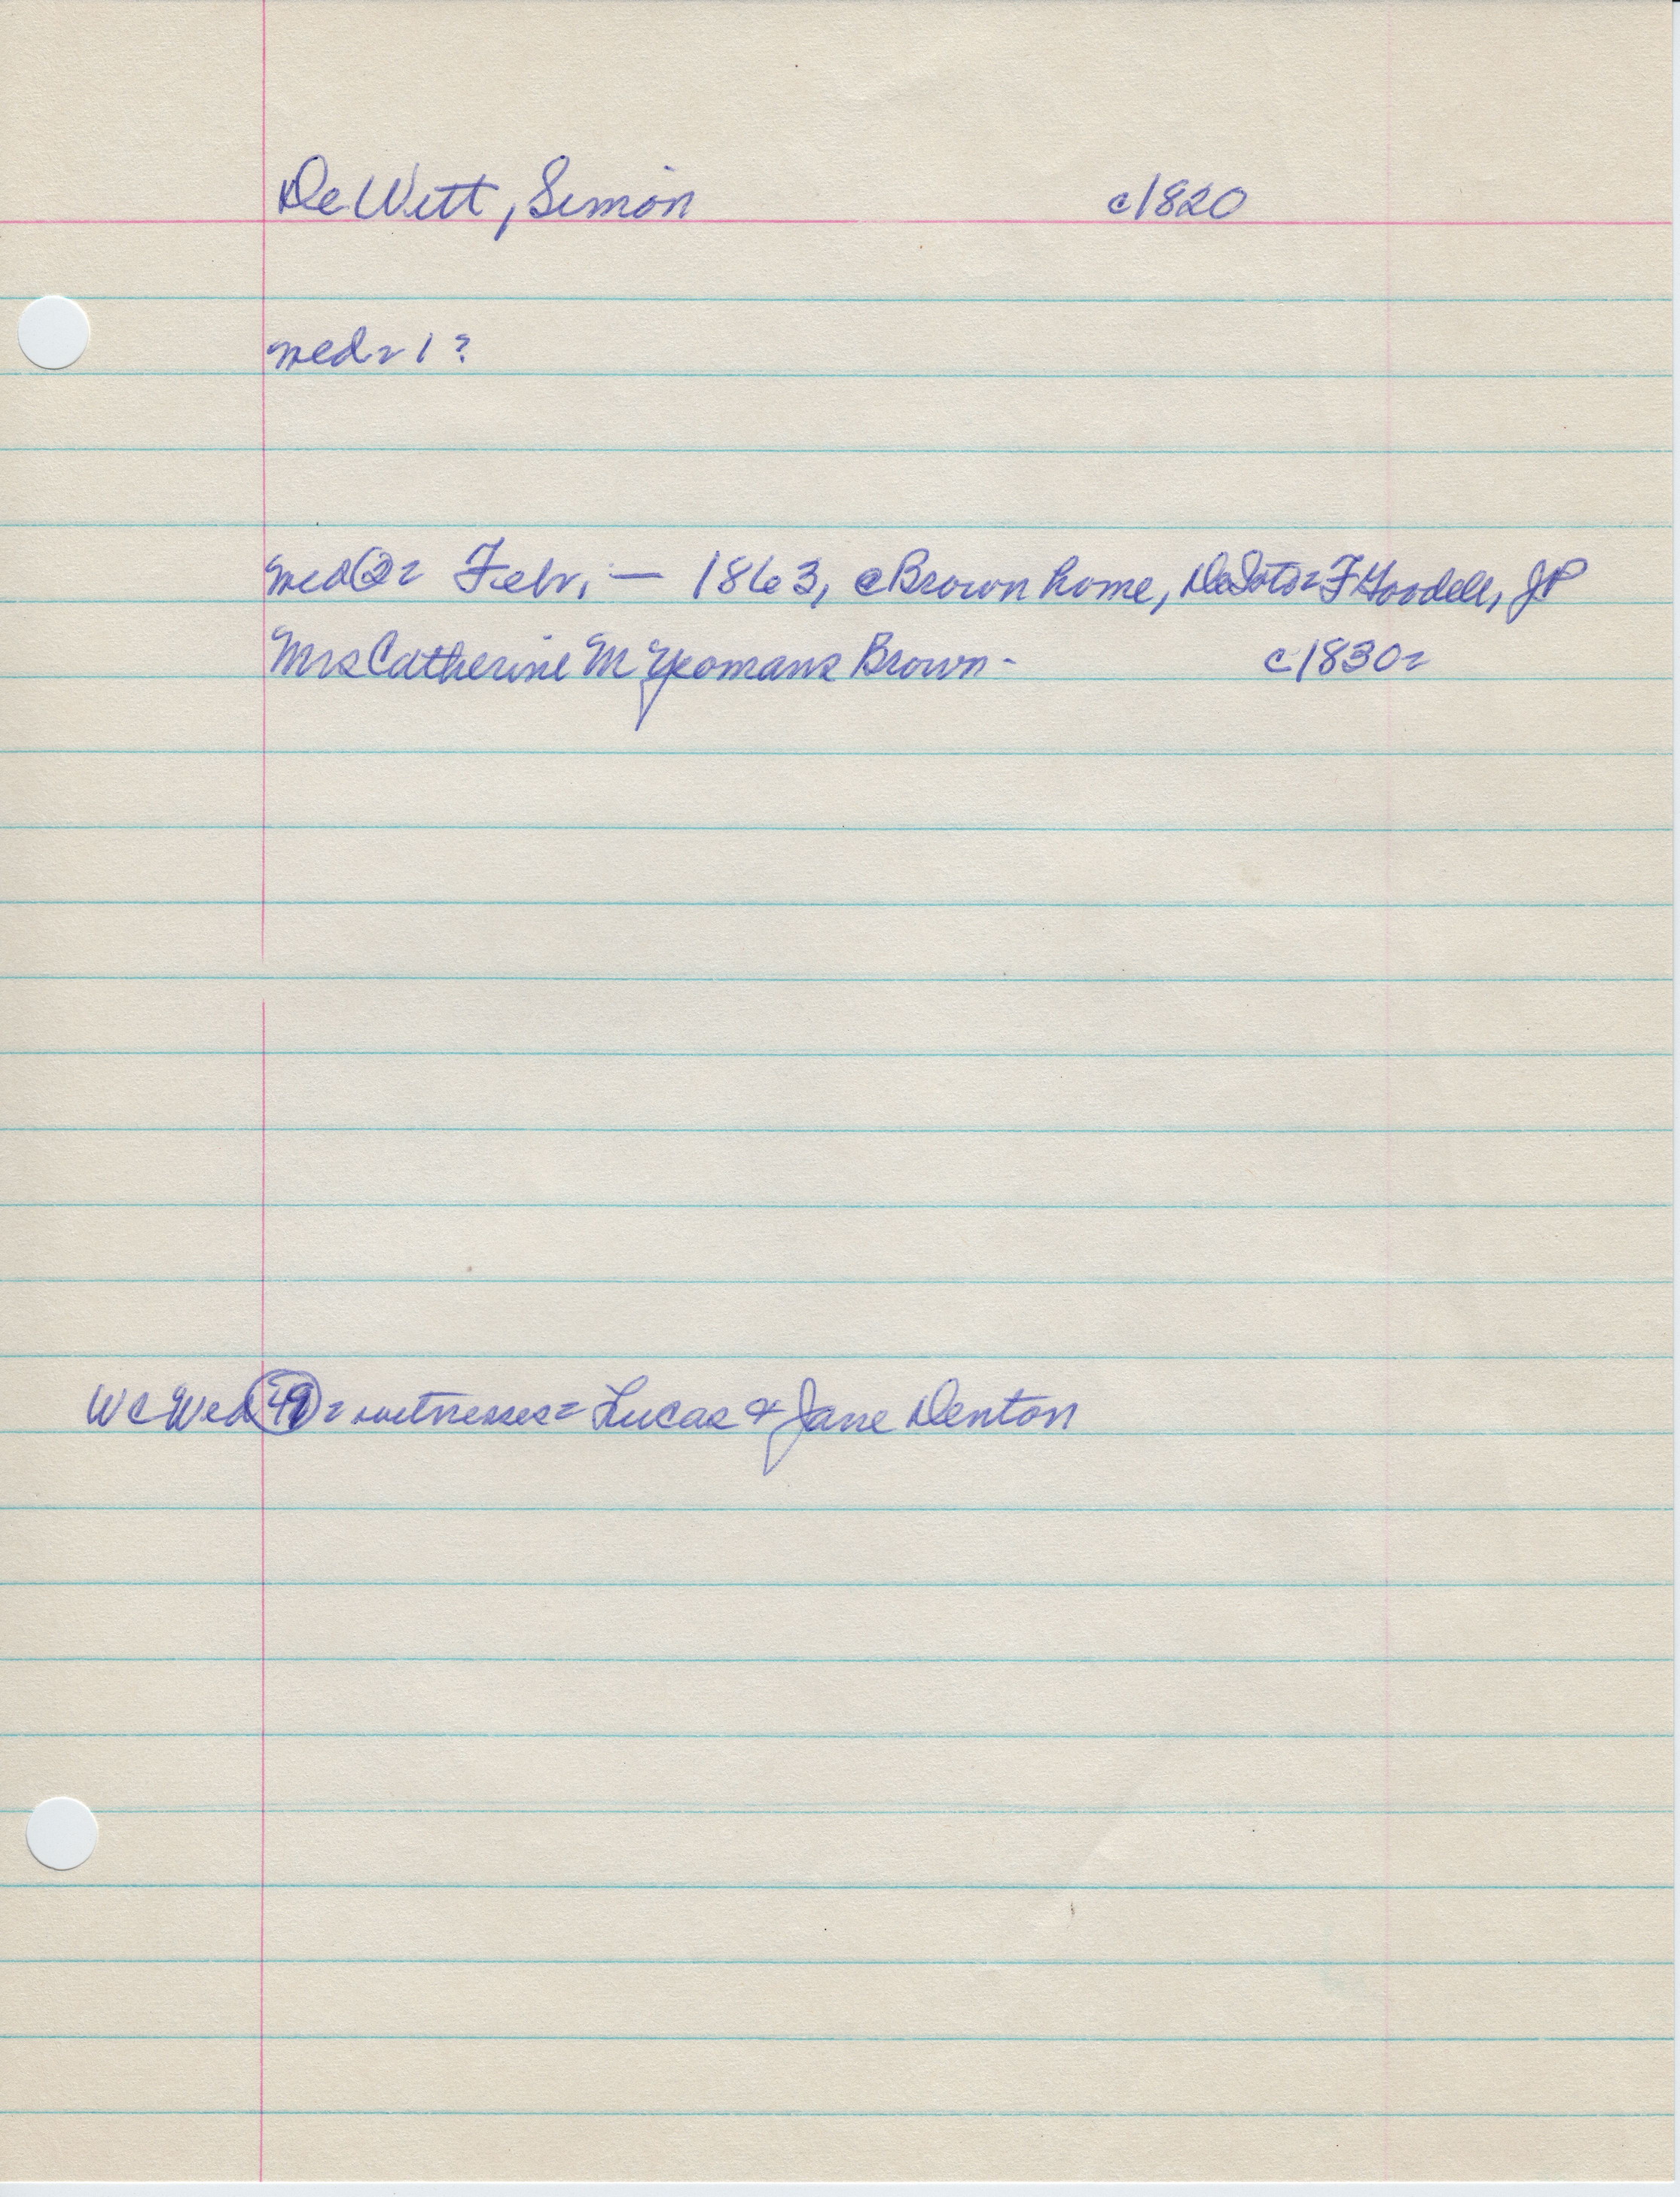 DeWitt, Simon c1820
wed= 1?
wed②= Febr. — 1863, @Brown home, DeSoto= F Goodell, JP
Mrs Catherine M Yeomans Brown- c1830=
WCWed = witnesses= Lucas & Jane Denton